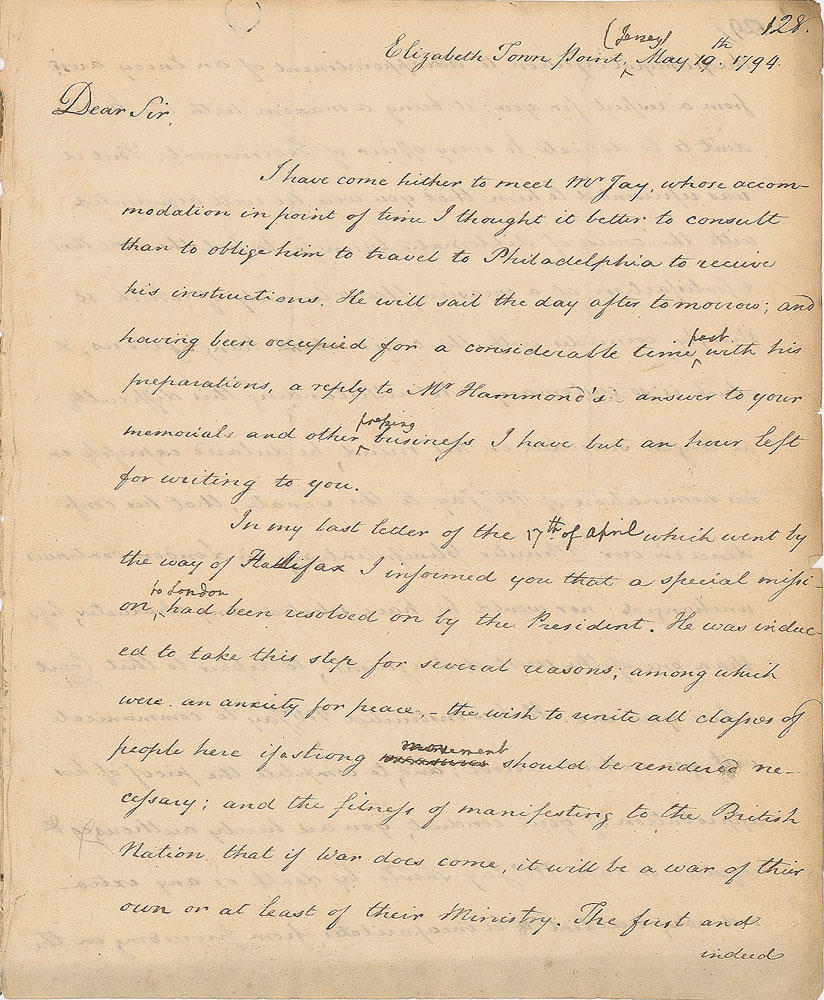 128.
(Jersey)
Elizabeth Town Point, May 19th. 1794
Dear Sir,
I have come hither to meet Mr Jay, whose accom-
modation in point of time I thought it better to consult
than to oblige him to travel to Philadelphia to receive
his instructions. He will sail the day after tomorrow; and
past
having been occupied for a considerable time, with his
preparations, a reply to Mr Hammond's answer to your
pressing
memorials and other business I have but an hour left
for writing to you.
In my last letter of the 17th of april which went by
the way of Hallifax I informed you that a special missi-
to London
on, had been resolved on by the President. He was induc-
ed to take this step for several reasons; among which
were an anxiety for peace - the wish to unite all classes of
movement
people here if a strong measures should be rendered ne-
cessary; and the fitness of manifesting to the British
Nation that if War does come, it will be a war of their
own or at least of their Ministry. The first and
indeed